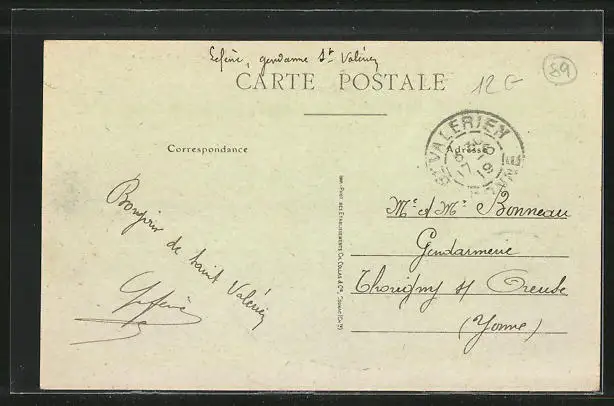 Lefène, gendarme St Valérien
CARTE POSTALE
12 G
89
Correspondance
Adresse
St VALERIEN
YONNE
Bonjour de saint Valérien
Lefène
Mr et Me Bonneau
Gendarmerie
Thorigny s/ Oreuse
(Yonne)
IMP.-PHOT. DES ÉTABLISSEMENTS CH. COLLAS & Cie, COGNAC (Chte)